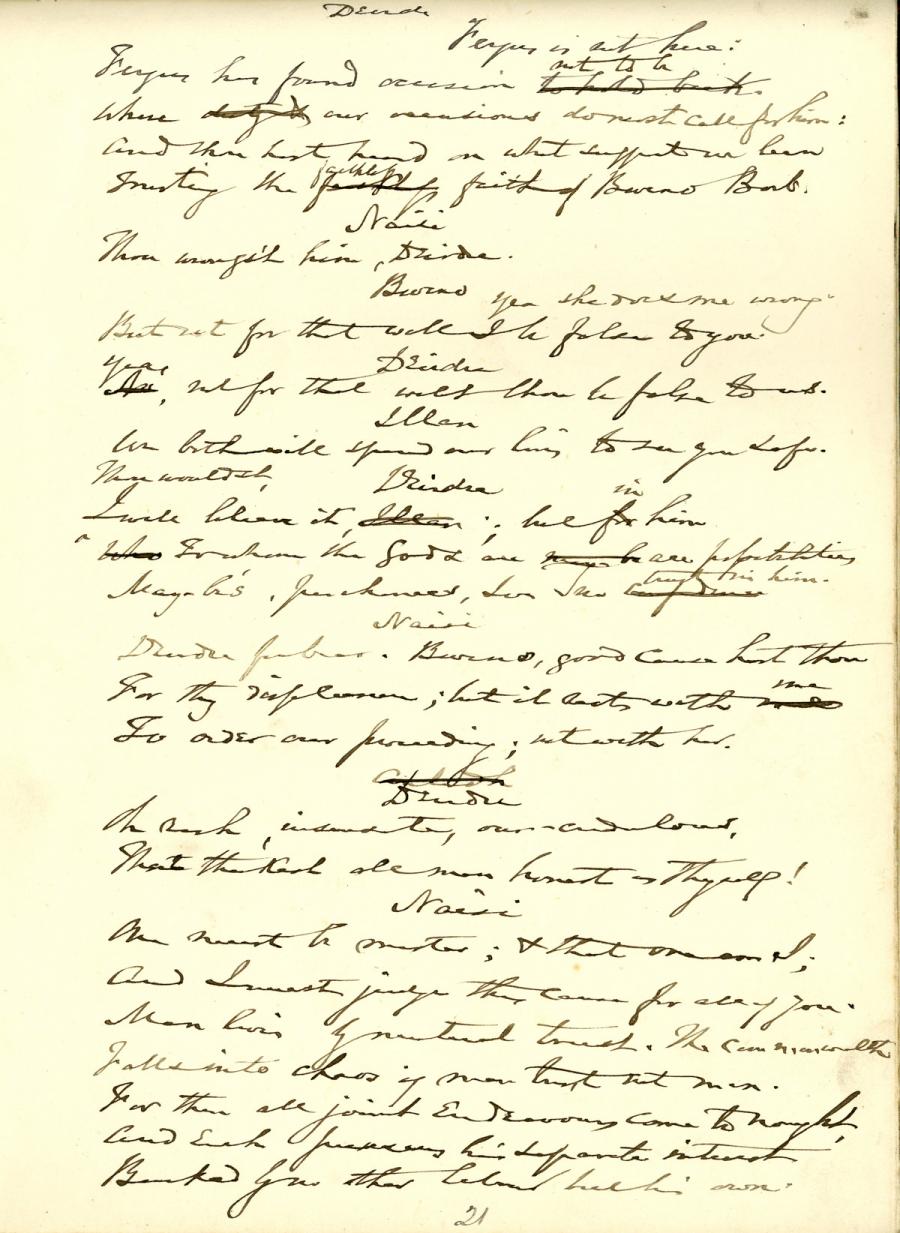 Deirdre
Fergus is not here:
not to be
Fergus has found occasion to hold back.
Where our occasions do most call for him:
And thou hast heard on what support we lean
faithless
Trusting the faith of Buino Borb.
Naisi
Thou wrong'st him, Deirdre.
Buino yea she does me wrong.
But not for that will I be false to you.
yea, Deirdre
not for that wilt thou be false to us.
Illan
We both will spend our lives to see you safe.
Thou wouldst, Deirdre in
I will believe it, Illan; but for him
Who To whom the Gods are may be all possibilities
trust in him.
May-be's, I've no confidence
Naisi
Deirdre forbear. Buino, good cause hast thou
me
For thy displeasure; but it rests with
To order our proceeding; not with her.
Deirdre
Oh rash, insensate,
That thinkest all men honest as Thyself!
Naisi
One must be master; & that one am I;
And I must judge this cause for all of you.
Man lives by mutual trust. The commonwealth
Falls into chaos if man trust not man.
For then all joint Endeavours come to nought,
And Each pursues his separate interest
Backed by no other labour but his own.
21